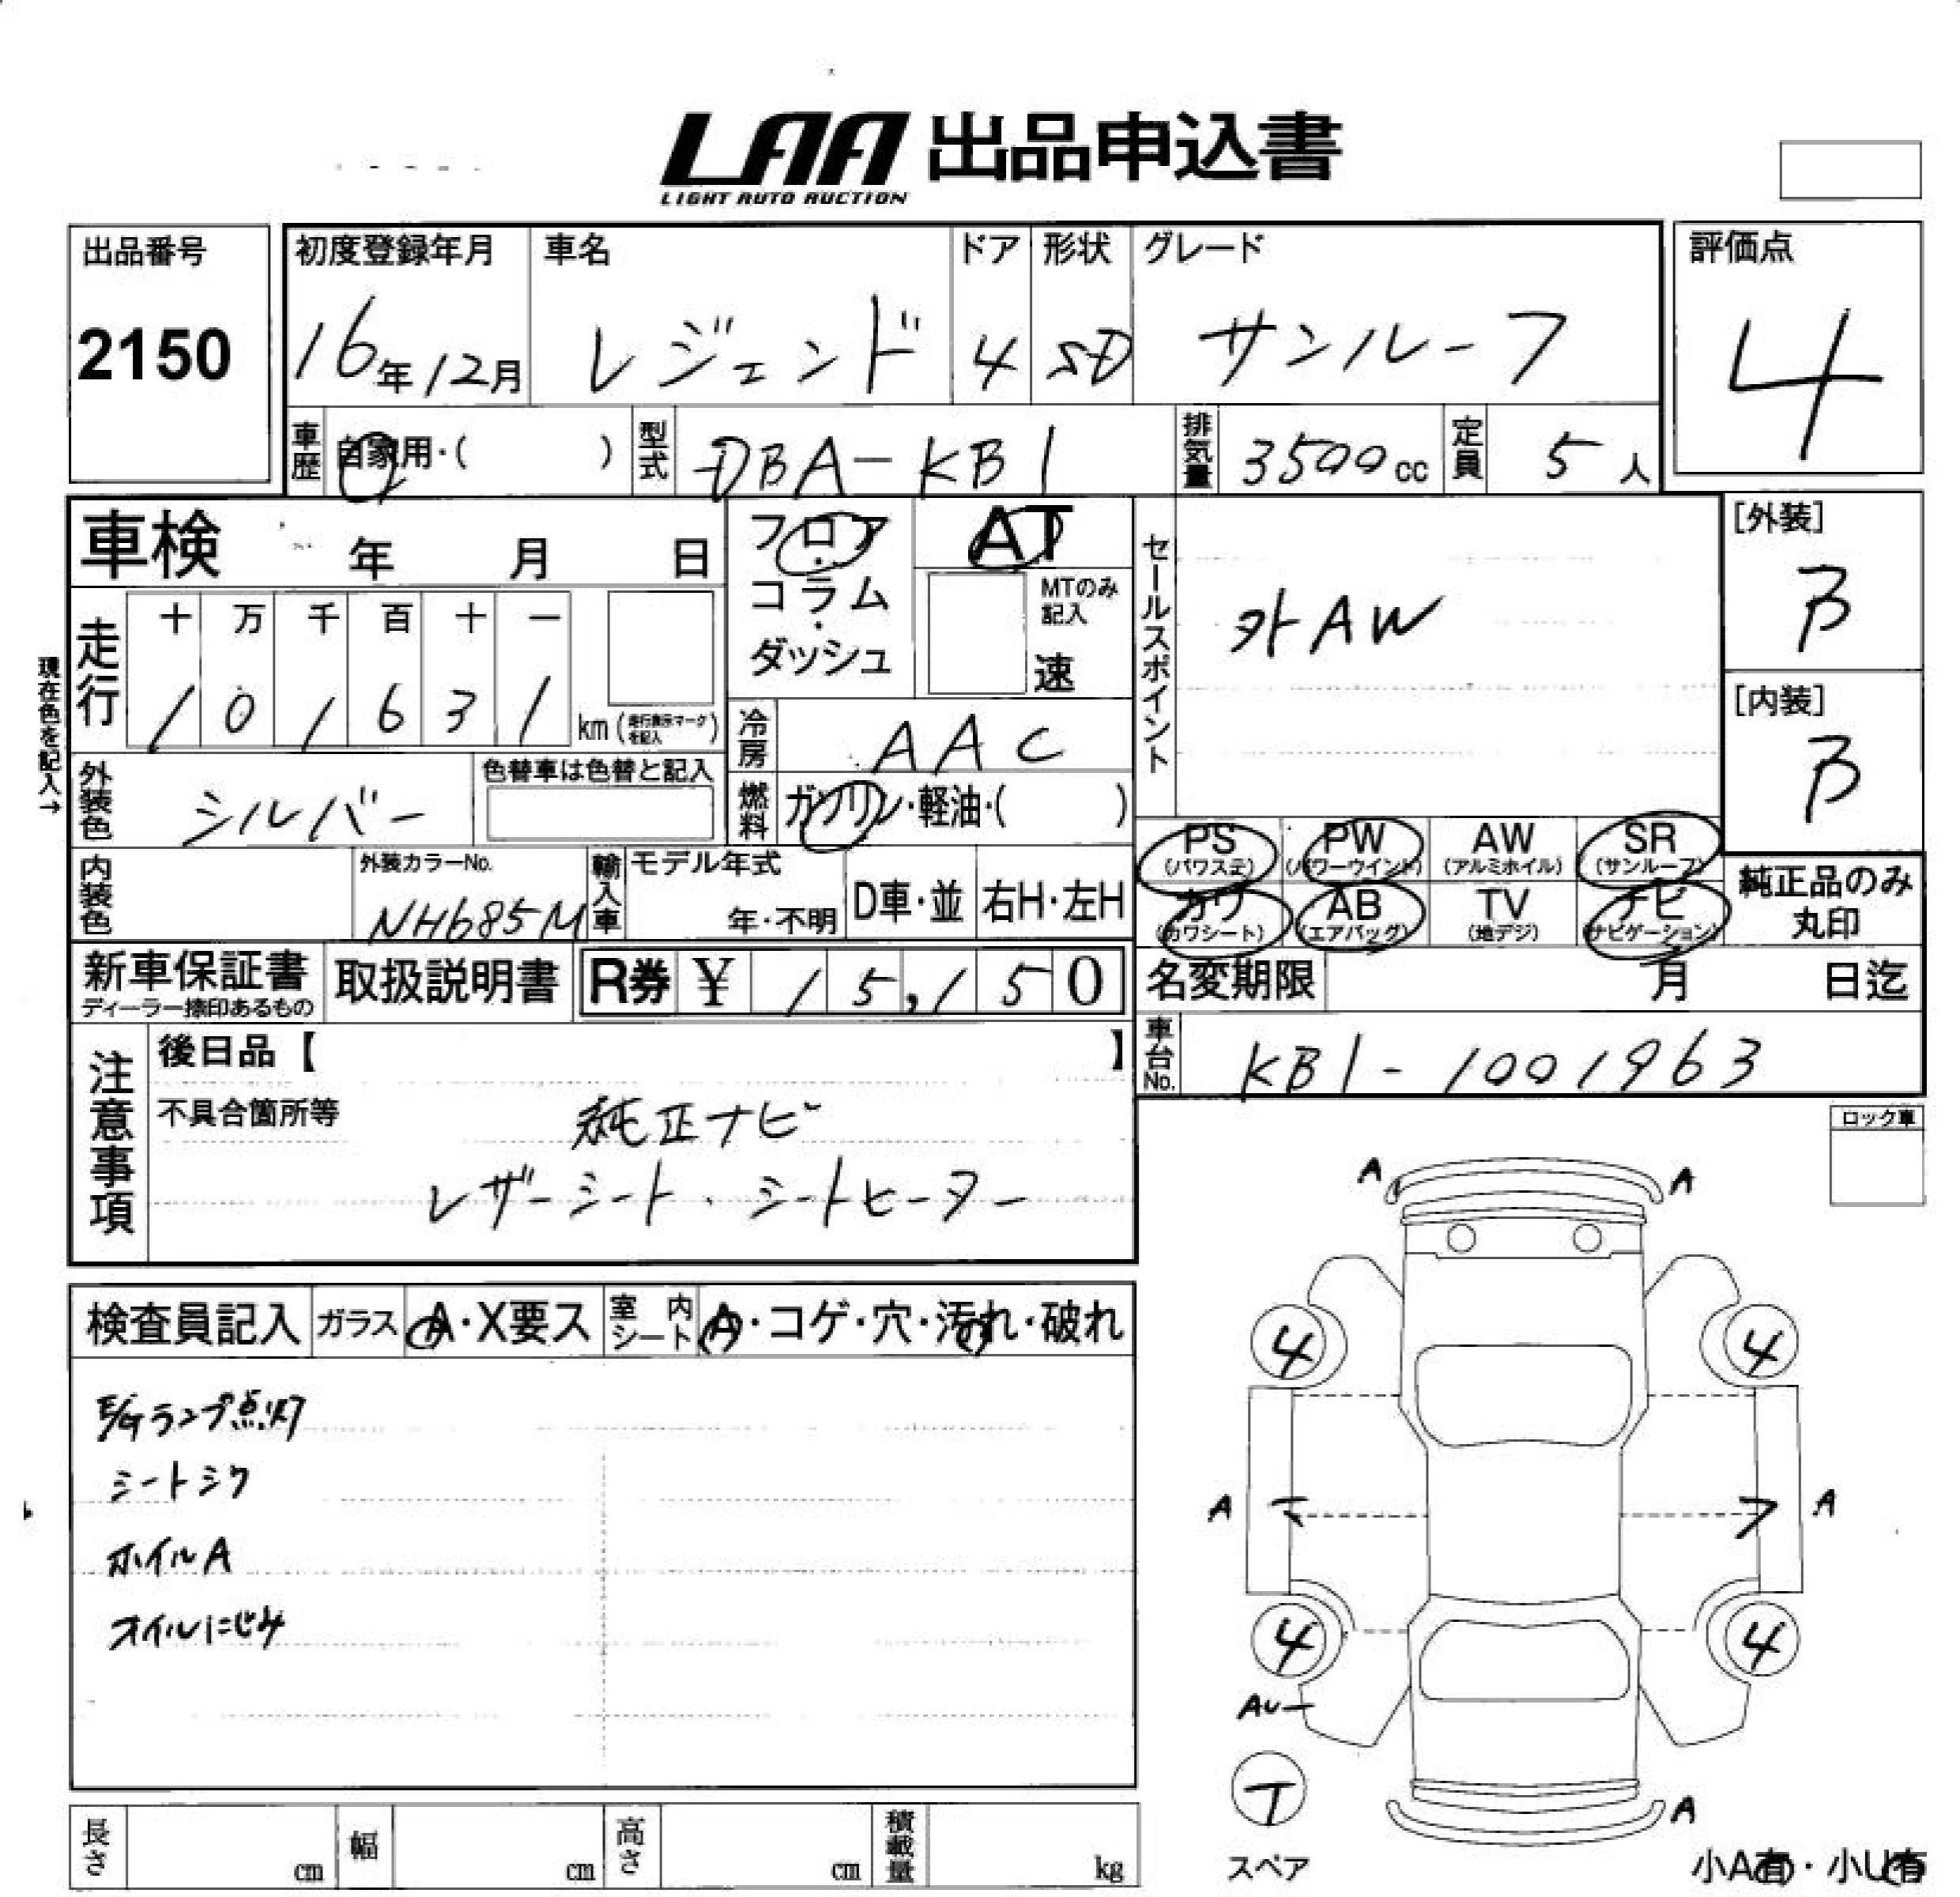 LAA 出品申込書
LIGHT AUTO AUCTION
出品番号
2150
初度登録年月
16年12月
車名
レジェンド
ドア
4
形状
SD
グレード
サンルーフ
評価点
4
車歴
自家用・( )
型式
DBA-KB1
排気量
3500cc
定員
5人
車検 年 月 日
フロア・コラム・ダッシュ
AT
MTのみ記入
速
セールスポイント
外AW
[外装]
B
[内装]
B
現在色を記入→
走行
十 万 千 百 十 一
1 0 1 6 3 1 km (走行表示マークを記入)
冷房
AAC
外装色
シルバー
色替車は色替と記入
燃料
ガソリン・軽油・( )
内装色
外装カラーNo.
NH685M
輸入車
モデル年式
年・不明
D車・並
右H・左H
PS (パワステ)
PW (パワーウインド)
AW (アルミホイル)
SR (サンルーフ)
カワ (カワシート)
AB (エアバッグ)
TV (地デジ)
ナビ (ナビゲーション)
純正品のみ丸印
新車保証書
ディーラー捺印あるもの
取扱説明書
R券 ¥ 15,150
名変期限 月 日迄
車台No.
KB1-1001963
注意事項
後日品【 】
不具合箇所等
純正ナビ
レザーシート・シートヒーター
ロック車
検査員記入
ガラス
A・X要ス
室内シート
A・コゲ・穴・汚れ・破れ
E/Gランプ点灯
シートシワ
ホイルA
オイルにじみ
A A
4 4
A A
4 4
AU
T
スペア
A
小A有・小U有
長さ cm
幅 cm
高さ cm
積載量 kg